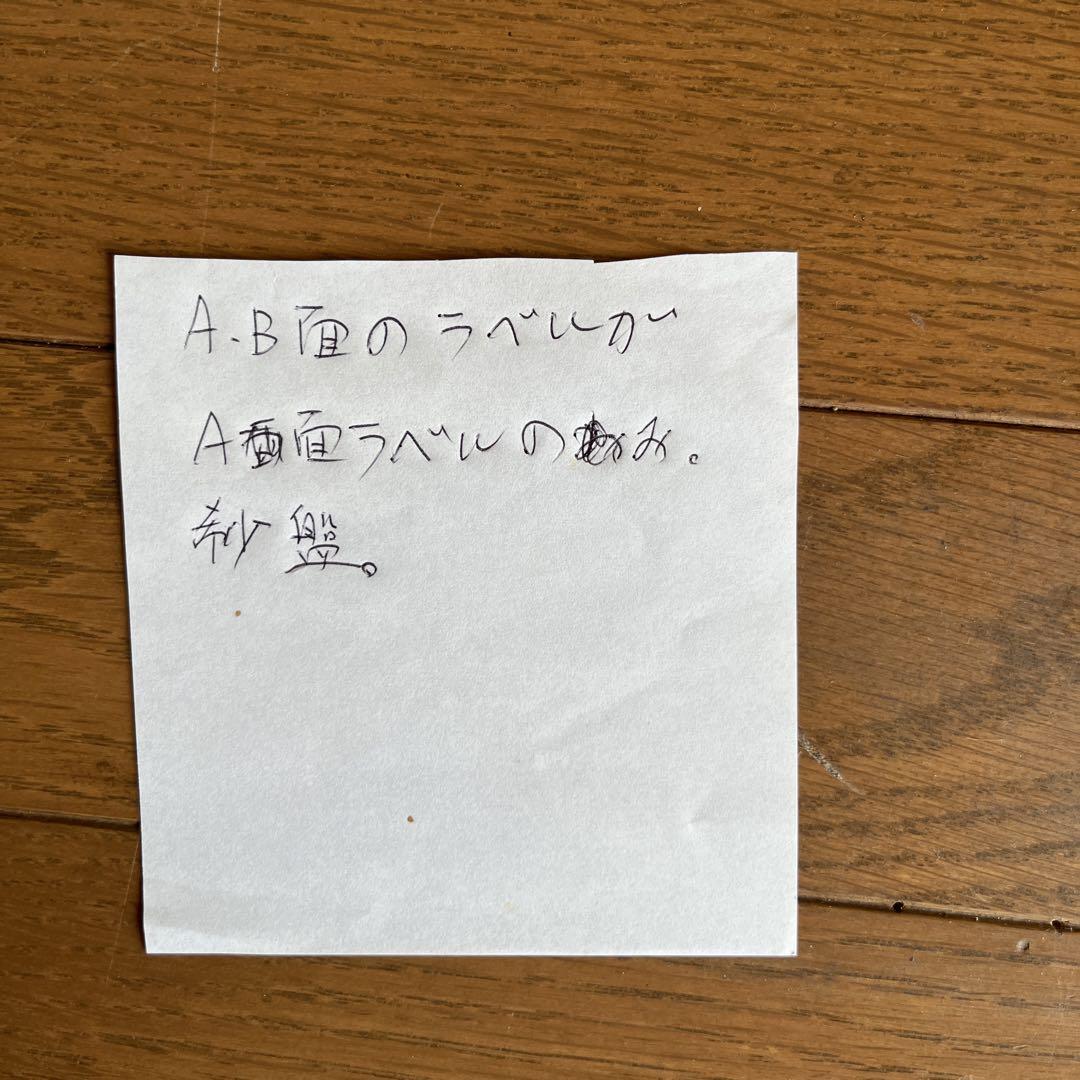 A.B面のラベルが
A面ラベルのみ。
希少盤。